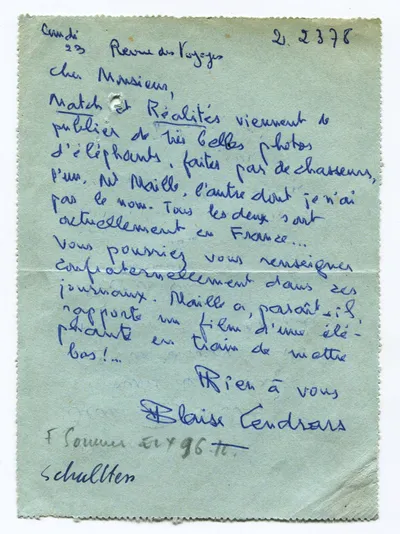 Lundi 2. 2378
23 Revue des Voyages
cher Monsieur,
Match et Réalités viennent de
publier de très belles photos
d'éléphants, faites par des chasseurs,
l'un, Mr Maille, l'autre dont je n'ai
pas le nom. Tous les deux sont
actuellement en France...
Vous pourriez vous renseigner
confraternellement dans ces
journaux. Maille a, paraît-il,
rapporté un film d'une élé-
phante en train de mettre
bas!...
Bien à vous
Blaise Cendrars
96
Schulthess